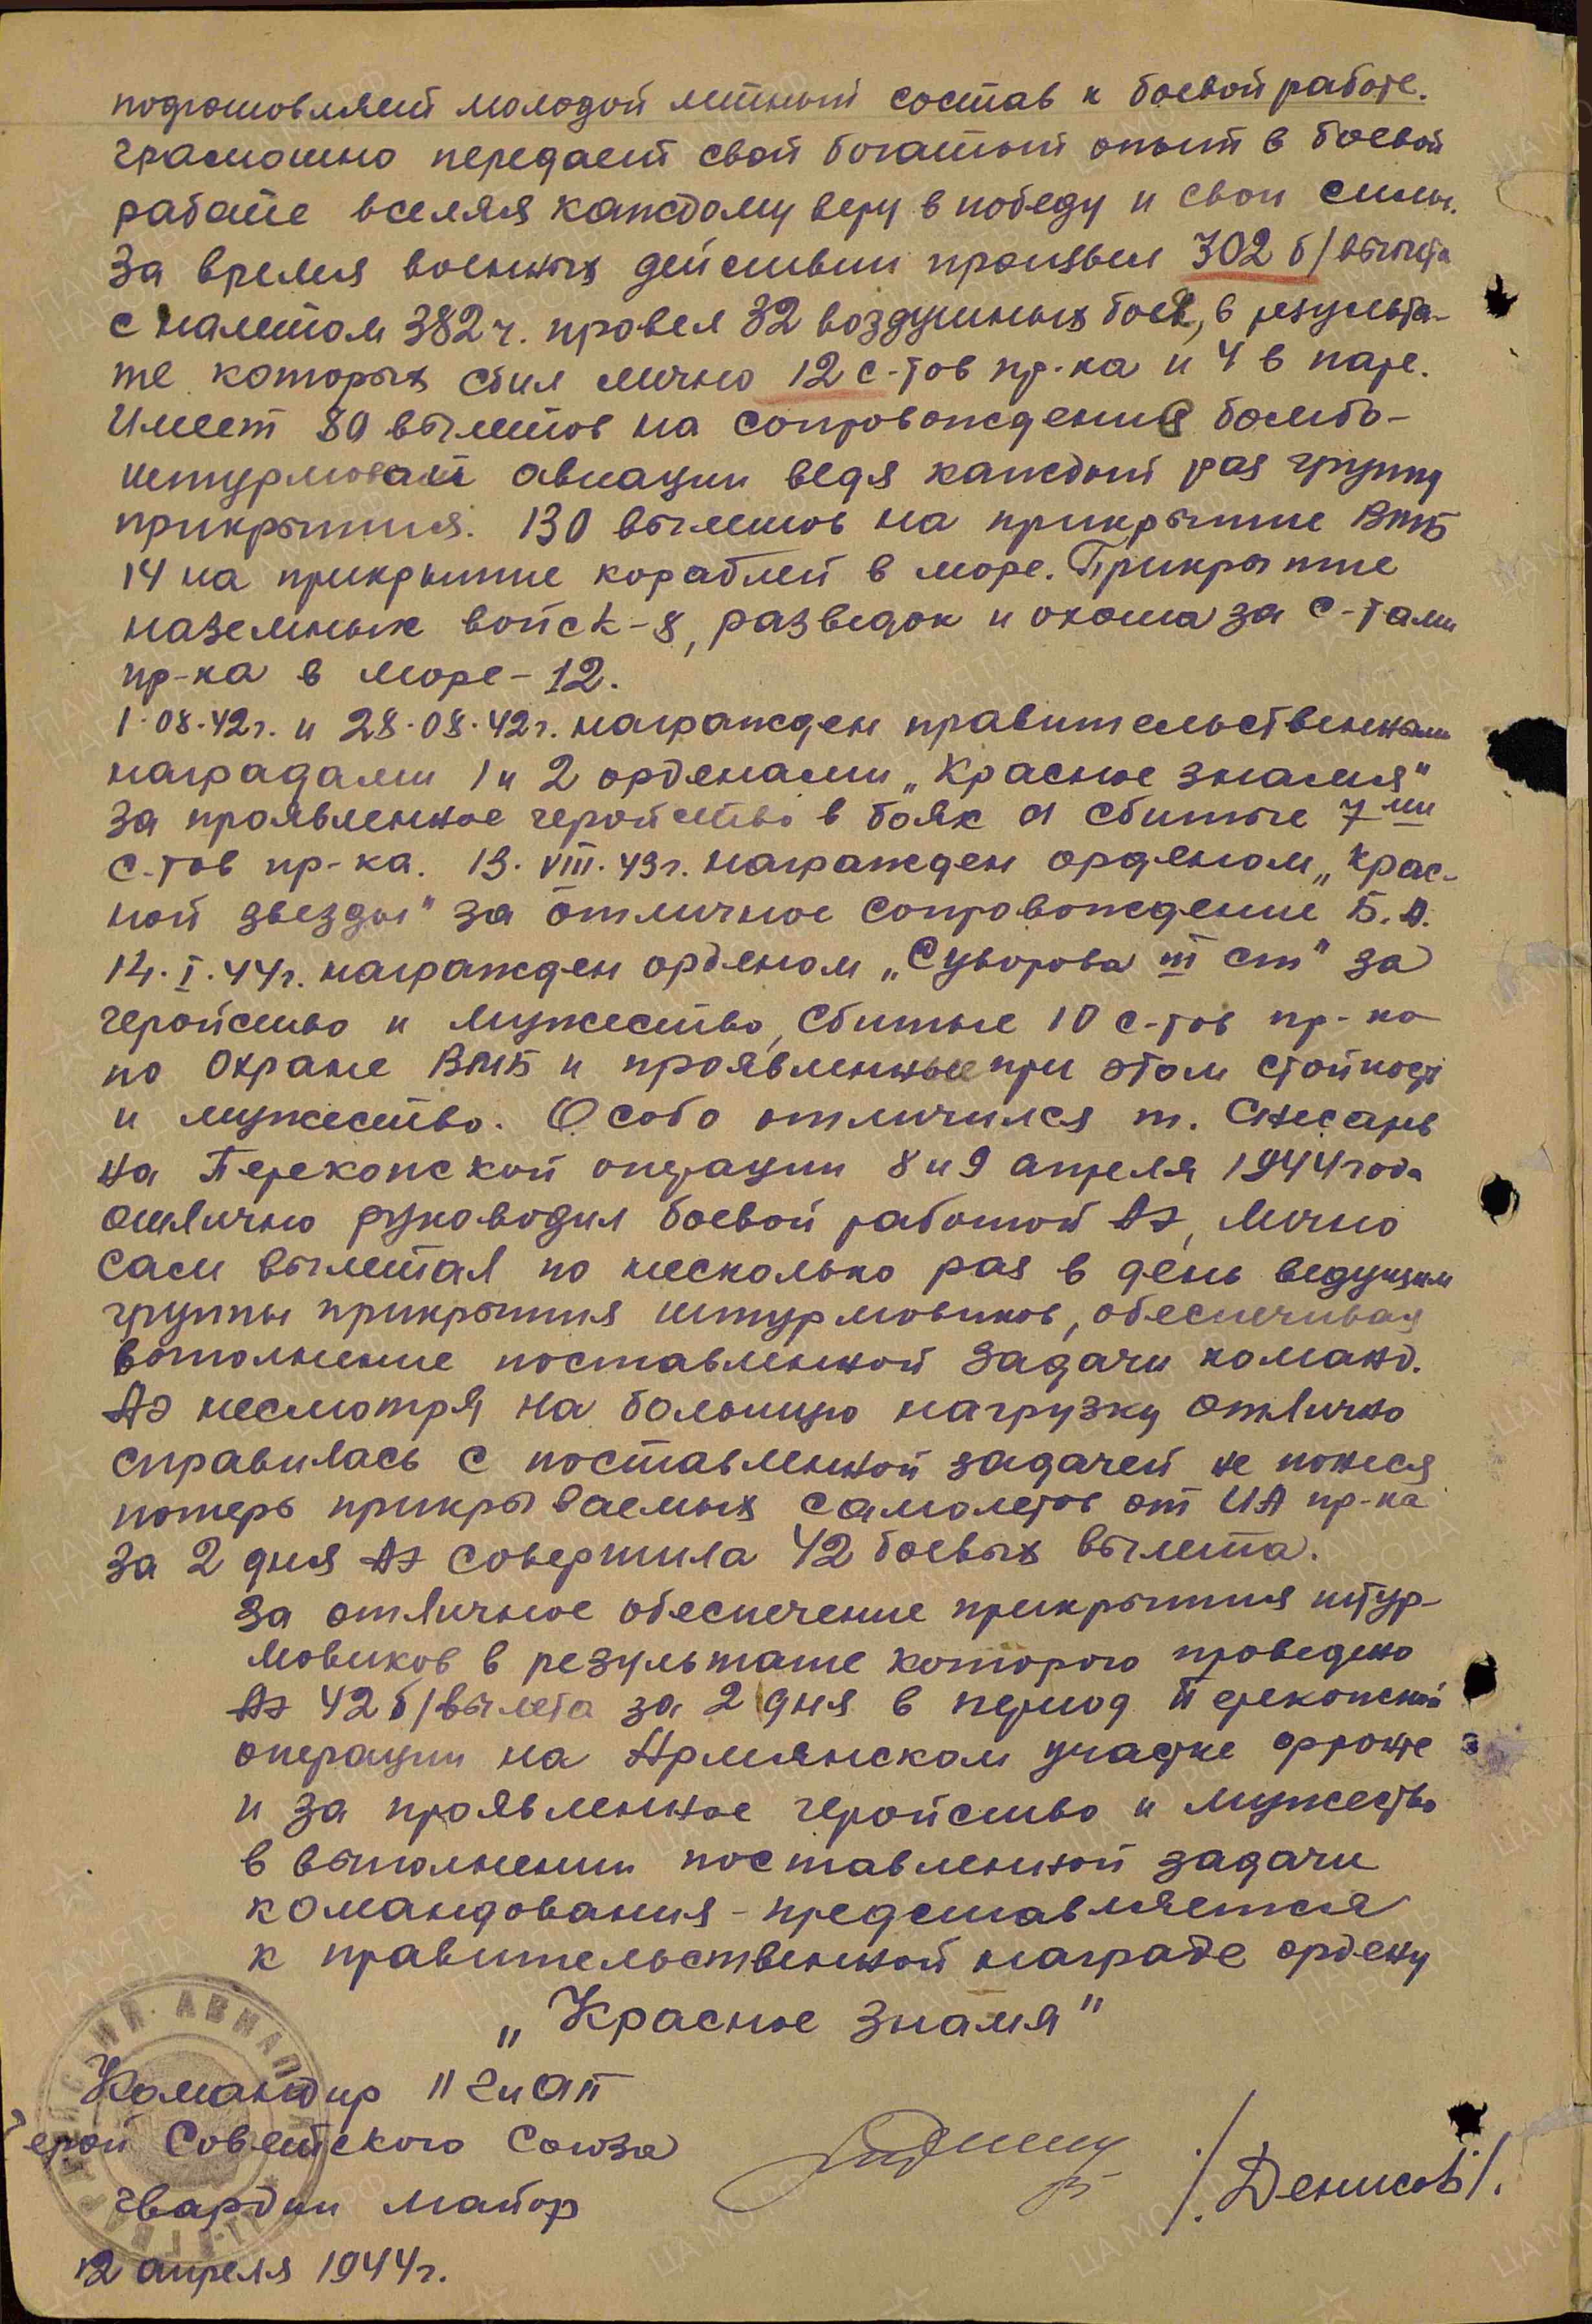 подготовляет молодой летный состав к боевой работе.
грамотно передает свой богатый опыт в боевой
работе вселяя каждому веру в победу и свои силы.
За время военных действии произвел 302 б/вылета
с налетом 382 ч. провел 32 воздушных боев, в результа-
те которых сбил лично 12 с-тов пр-ка и 4 в паре.
Имеет 80 вылетов на сопровождения бомбо-
штурмовой авиации ведя каждый раз группу
прикрытия. 130 вылетов на прикрытие ВМБ
14 на прикрытие кораблей в море. Прикрытие
наземных войск-8, разведок и охота за с-тами
пр-ка в море-12.
1.08.42г. и 28.08.42г. награжден правительственными
наградами 1 и 2 орденами „Красное знамя"
за проявленное геройство в боях и сбитые 7ми
с-тов пр-ка. 13.VIII.43г. награжден орденом „Крас-
ной звезды" за отличное сопровождение Б.А.
14.I.44г. награжден орденом „Суворова III ст" за
геройство и мужество, сбитые 10 с-тов пр-ка
по охране ВМБ и проявленные при этом стойкость
и мужество. Особо отличился т. Слесарев
на Перекопской операции 8 и 9 апреля 1944 года
отлично руководил боевой работой АЭ, лично
сам вылетал по несколько раз в день ведущим
группы прикрытия штурмовиков, обеспечивая
выполнение поставленной задачи команд.
АЭ несмотря на большую нагрузку отлично
справилась с поставленной задачей не понеся
потерь прикрываемых самолетов от ИА пр-ка
за 2 дня АЭ совершила 42 боевых вылета.
За отличное обеспечение прикрытия штур-
мовиков в результате которого проведено
АЭ 42 б/вылета за 2 дня в период Перекопской
операции на Армянском участке фронте
и за проявленное геройство и мужество
в выполнении поставленной задачи
командования - представляется
к правительственной награде ордену
„Красное знамя"
Командир 11 ГИАП
Герой Советского Союза
гвардии майор
/.Денисов/.
12 апреля 1944г.